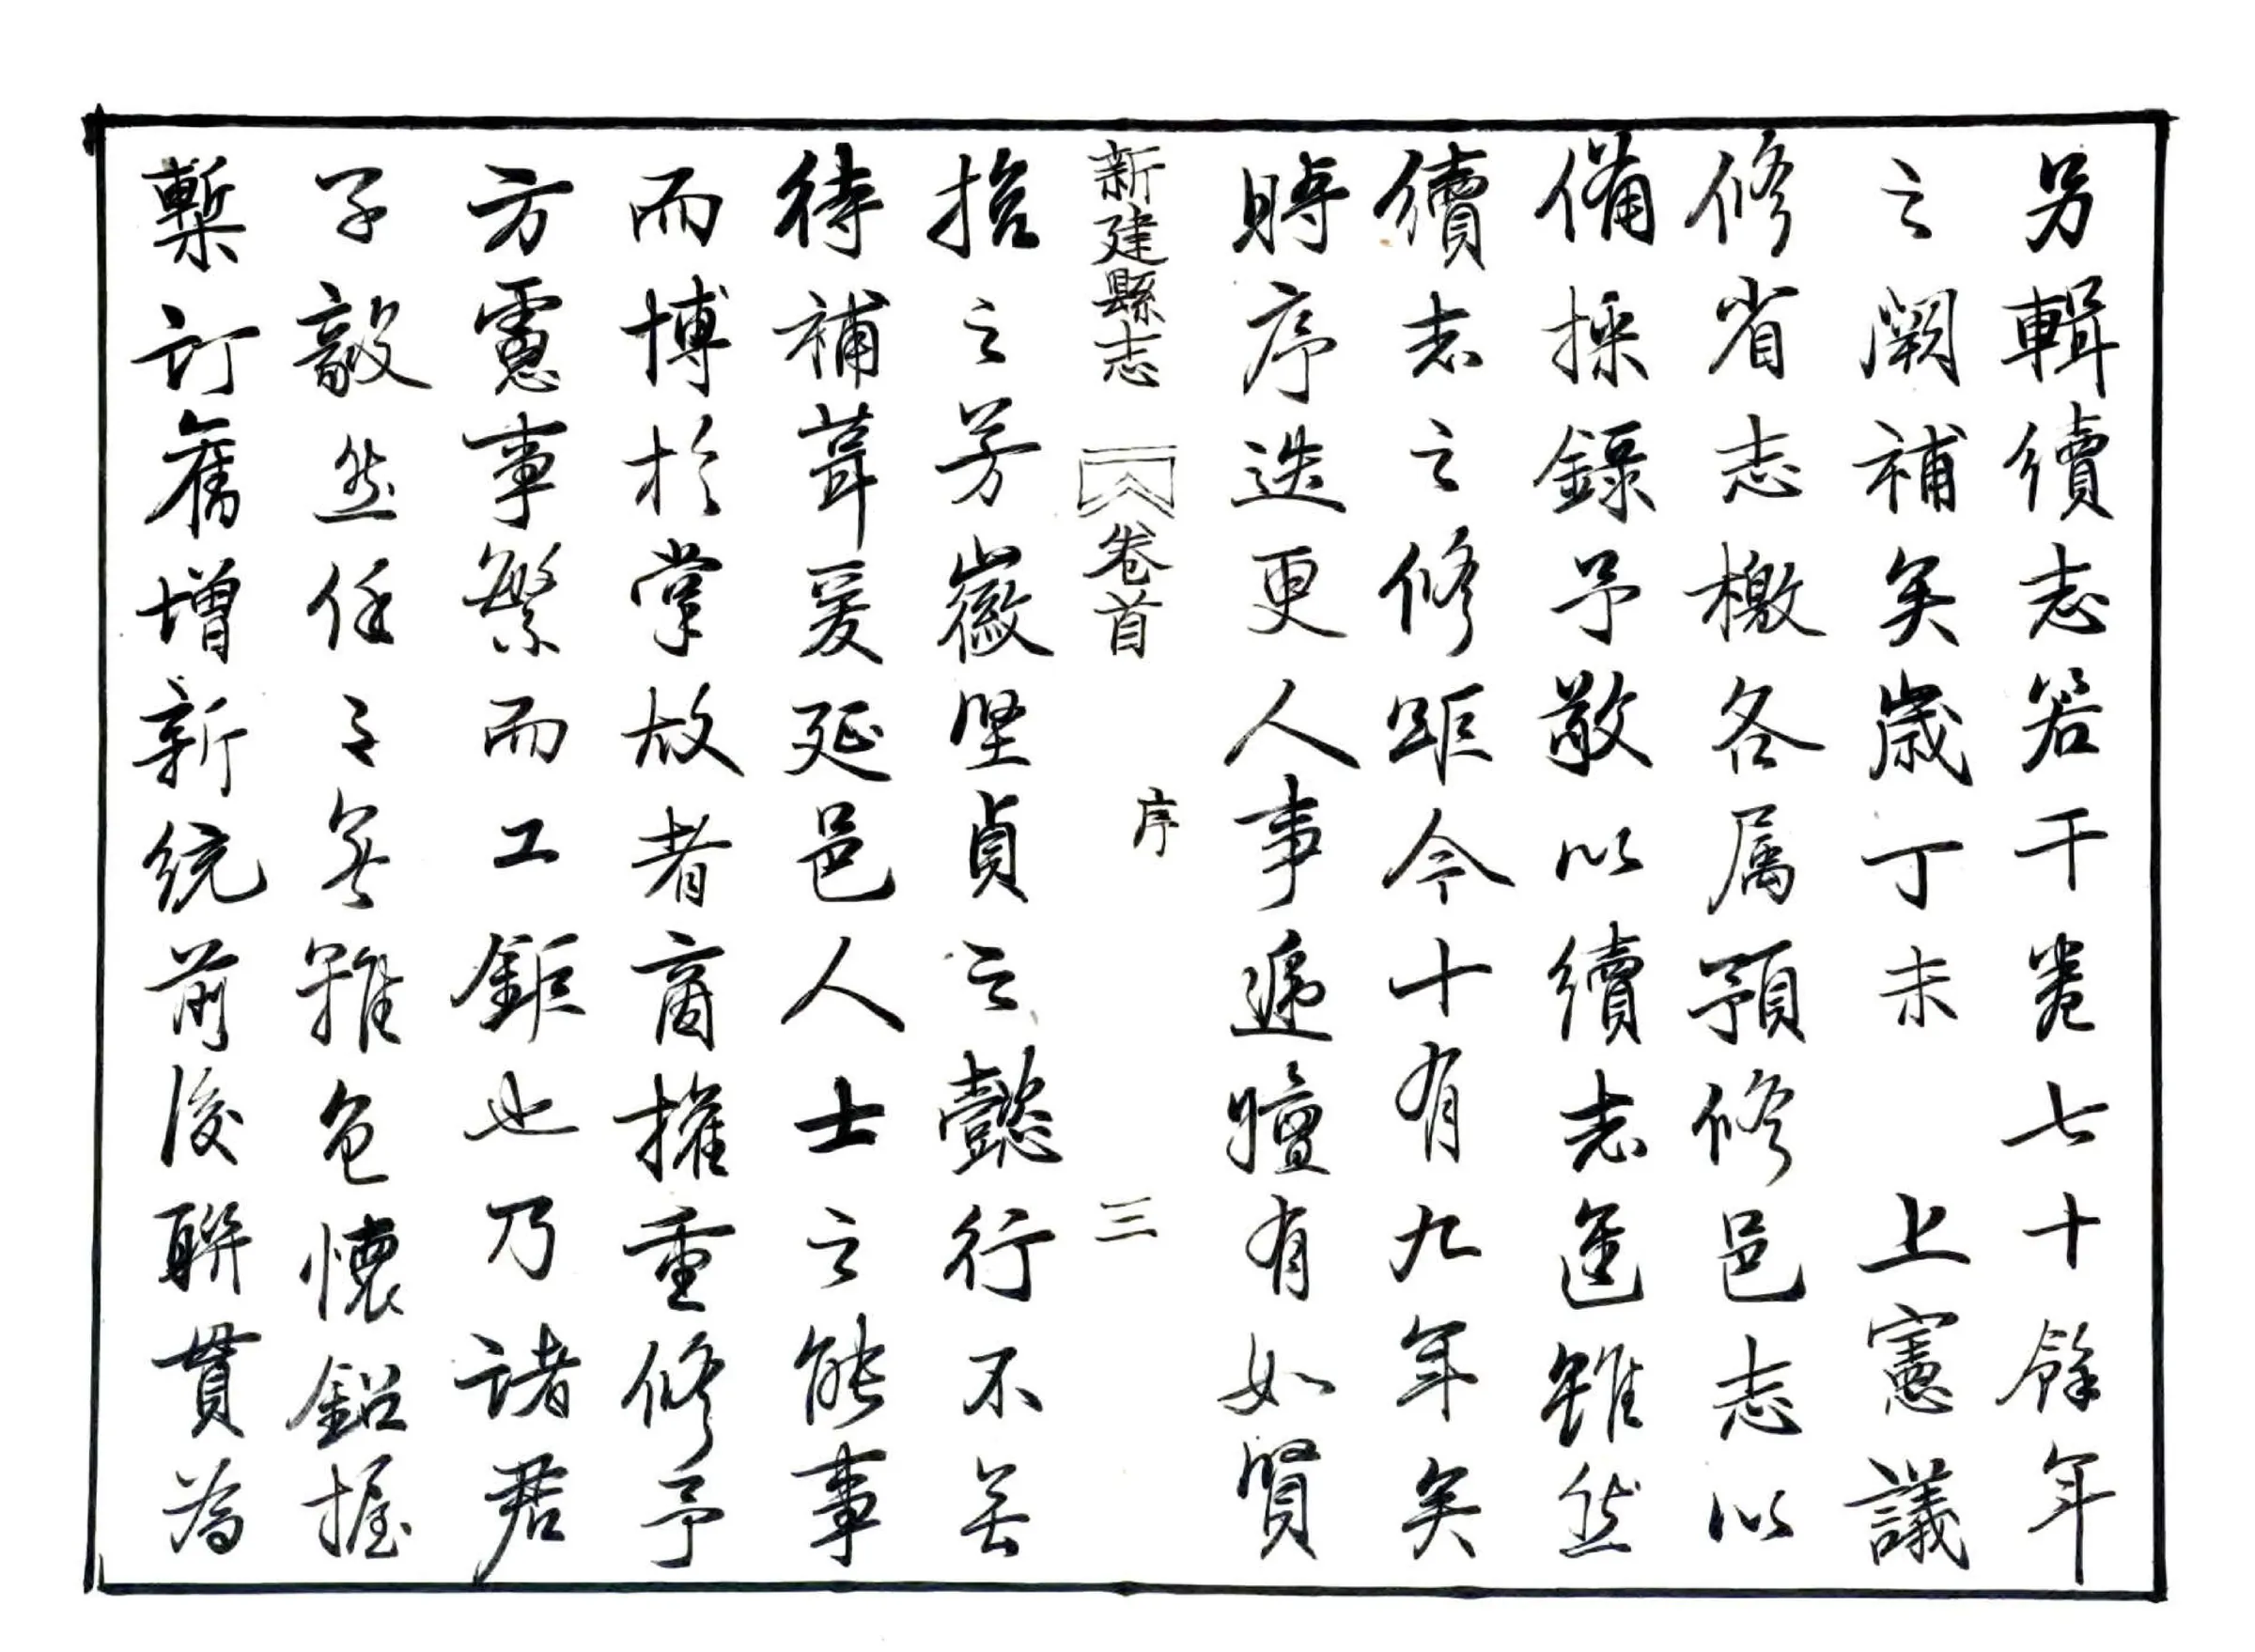 另輯續志若干卷七十餘年
之闕補矣歲丁未　上憲議
修省志檄各属預修邑志以
備採錄予敬以續志進雖然
續志之修距今十有九年矣
時序迭更人事遞嬗有如賢
新建縣志　卷首　序　三
拾之芳徽坚貞之懿行不無
待補葺爰延邑人士之能事
而博於掌故者商搉重修予
方慮事繁而工鉅也乃諸君
子毅然任之無難色懷鉛握
槧訂舊增新統前後聯貫為